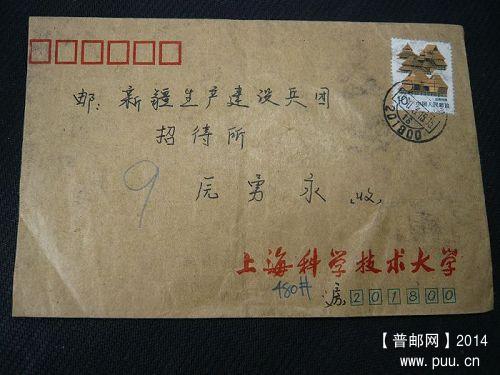 邮: 新疆生产建设兵团
招待所
9
勇永 收
上海科学技术大学
480#
201800
中国人民邮政
【普邮网】2014
www.puu.cn